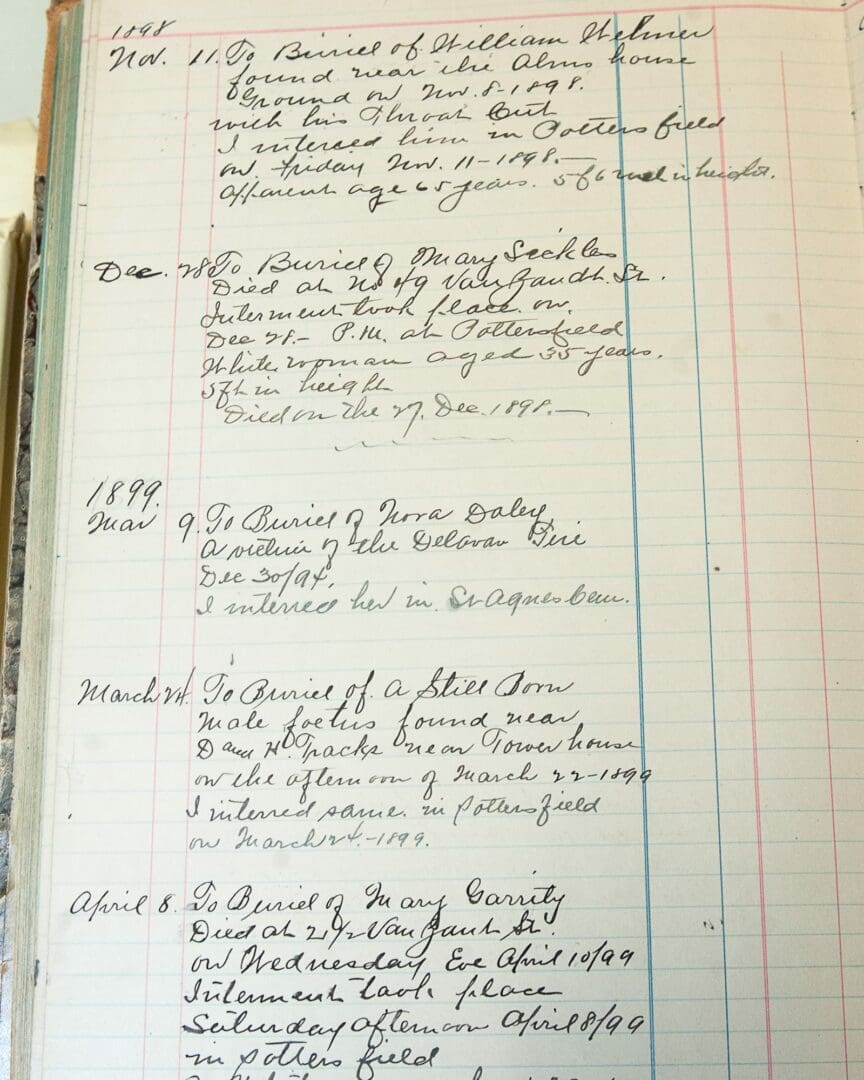 1898
Nov. 11. To Buriel of William Welmer
found near the Alms house
Ground on Nov. 8-1898.
with his Throat Cut
I interred him in Potters field
on Friday Nov. 11-1898.—
apparent age 65 years. 5 ft 6 in height.
Dec. 28 To Buriel of Mary Sickles
Died at No 49 Van Zandt. St.
Interment took place on.
Dec 28.- P.M. at Pottersfield
White woman aged 35 years.
5 ft in height
Died on the 27. Dec. 1898.—
1899.
Mar 9. To Buriel of Nora Daley
a victim of the Delavan Fire
Dec 30/94.
I interred her in St Agnes Cem.
March 24. To Buriel of a Still Born
male foetus found near
D and H. Tracks near Tower house
on the afternoon of March 22-1899
I interred same. in Pottersfield
on March 24.-1899.
April 8. To Buriel of Mary Garrity
Died at 21/2 Van Zant St.
on Wednesday Eve April 10/99
Interment took place
Saturday afternoon April 8/99
in potters field